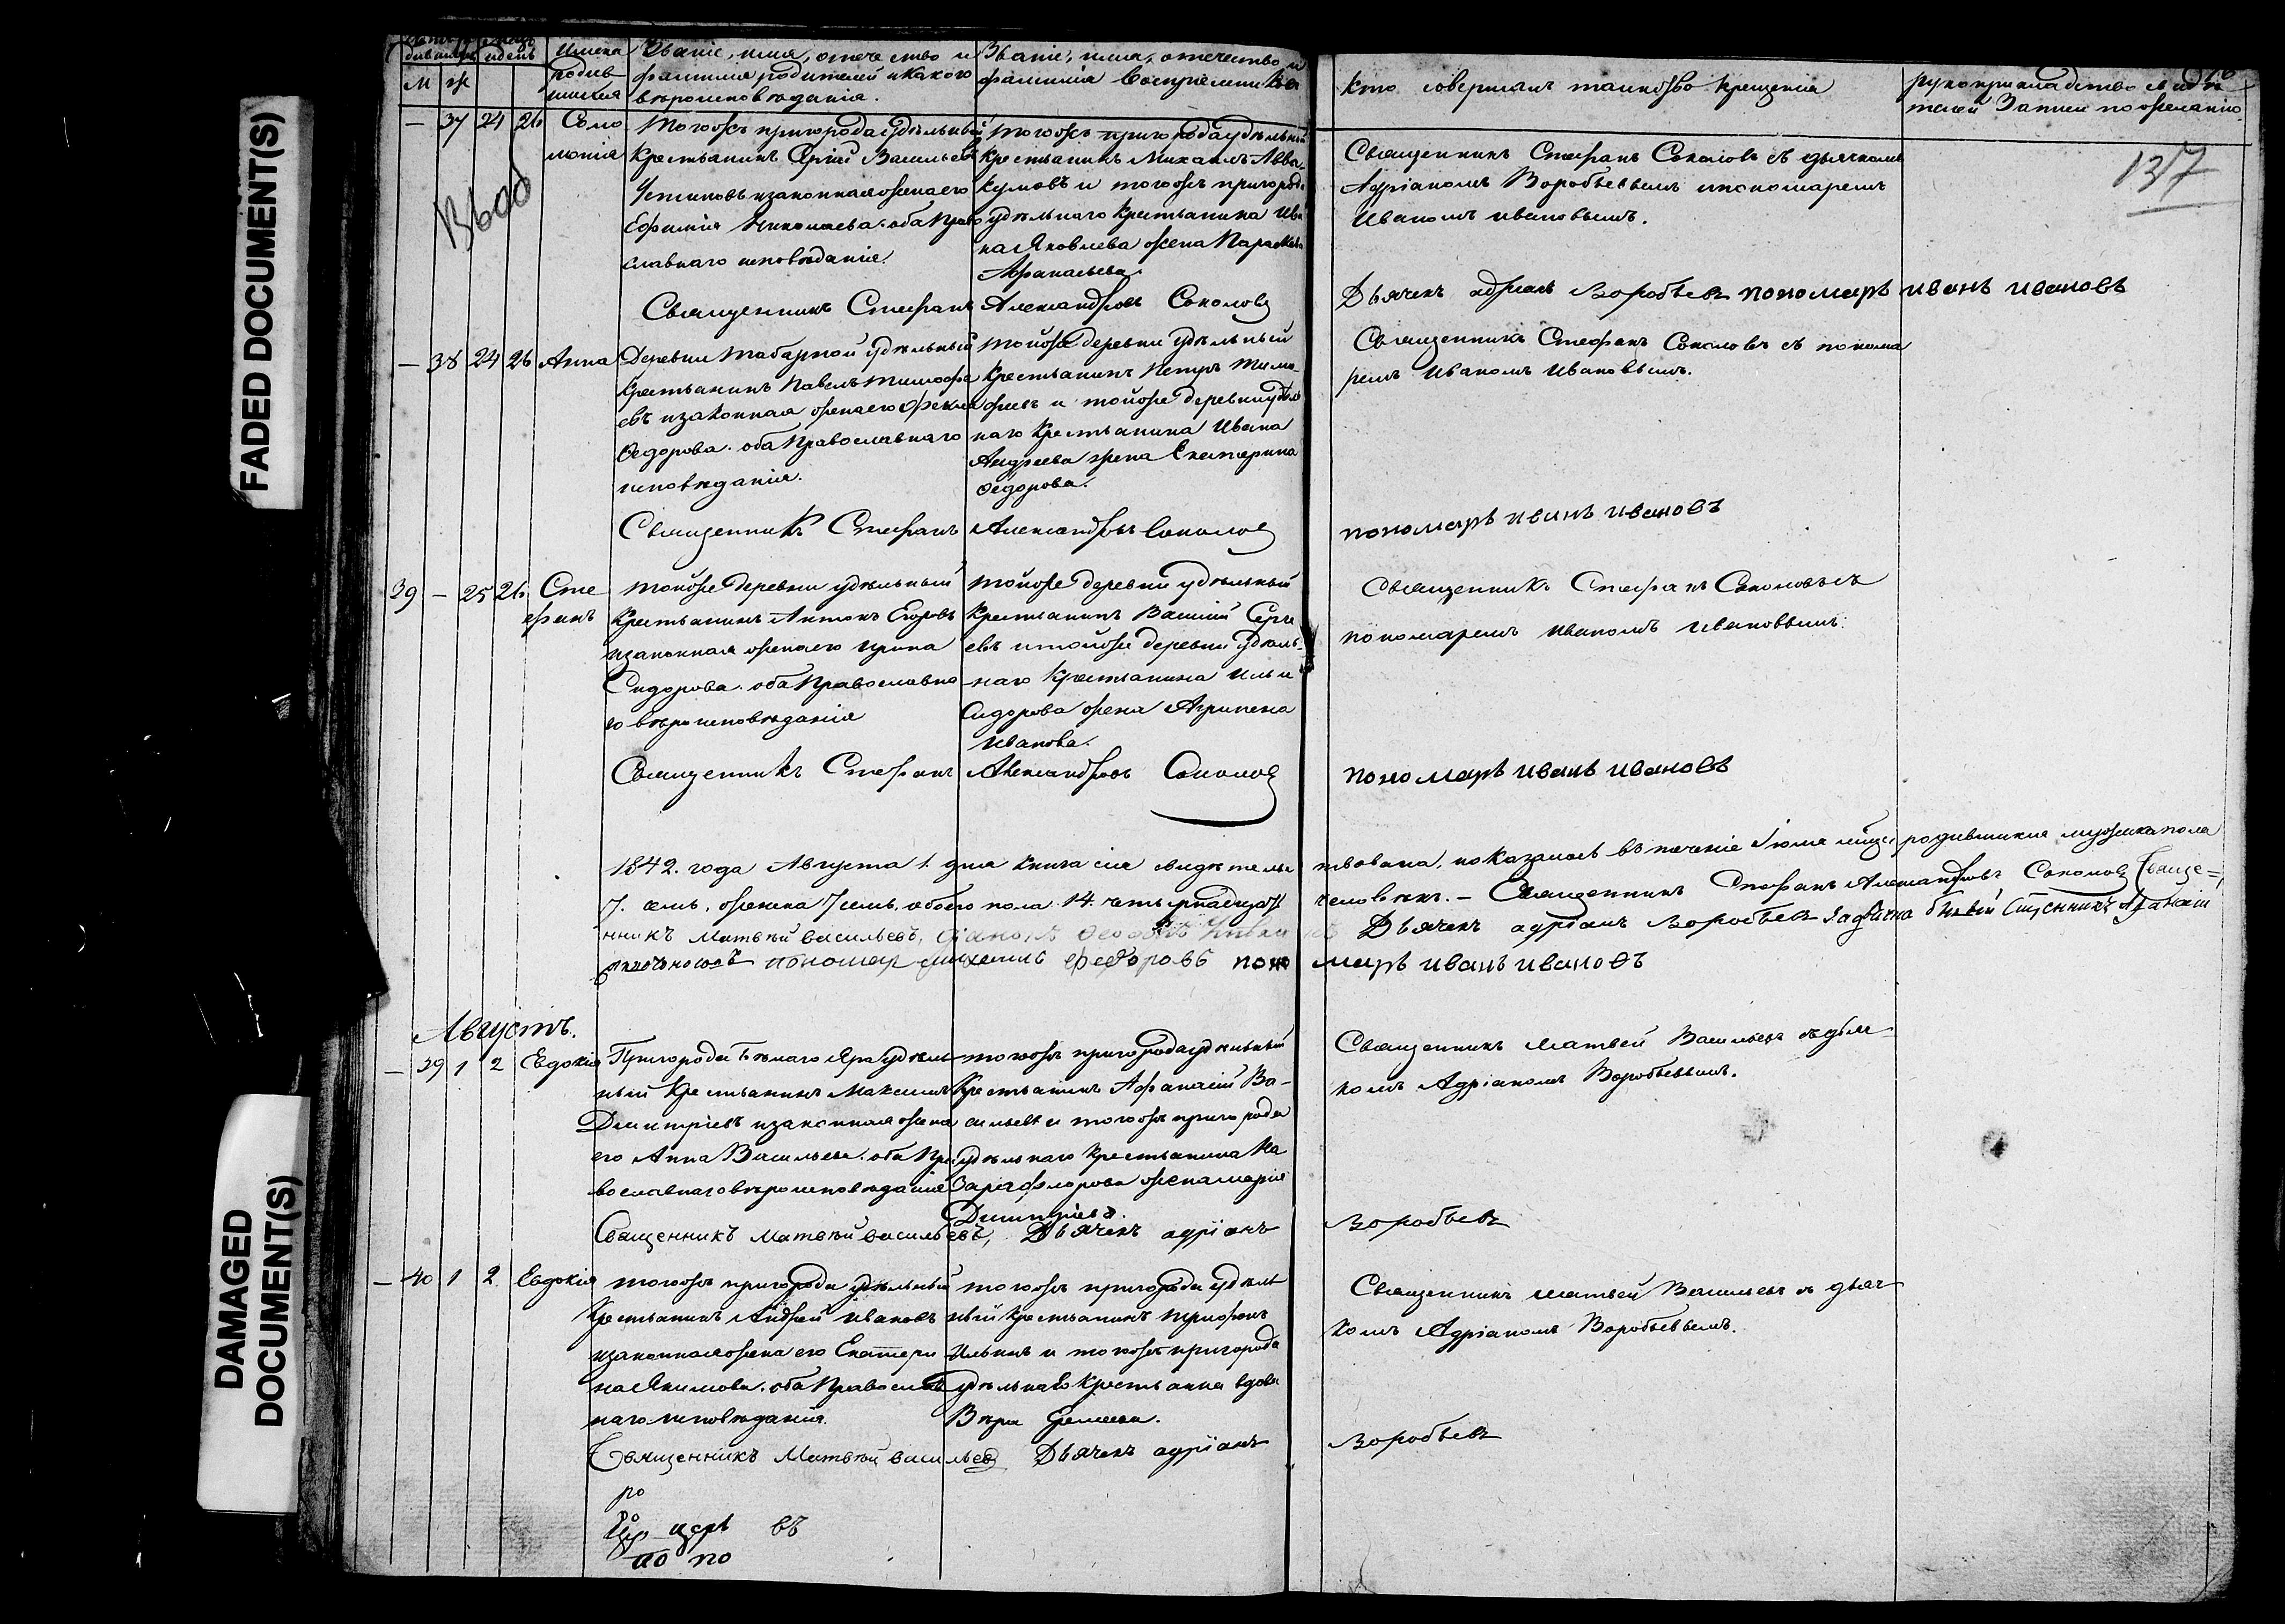 FADED DOCUMENT(S)
DAMAGED DOCUMENT(S)
М Ж
имена родив шихся
Званіе, имя, отечество и фамилія родителей и какого вероисповѣданія.
Званіе, имя, отечество и фамилія Воспріемниковъ
Кто совершалъ таинство крещенія
рукоприкладство свидѣтелей Записи по желанію.
137
— 37 24 26 Соло
монія
Тогожъ пригорода удѣльный
Крестьянинъ Сергій Васильевъ
Устиновъ и законная жена его
Ефимія Николаева. оба Право
славнаго исповѣданія.
тогожъ пригорода удѣльный
Крестьянинъ Михаилъ Авва
кумовъ и тогожъ пригорода
удѣльнаго Крестьянина Ива
на Яковлева жена Параскева
Афанасьева.
Священникъ Стефанъ Соколовъ съ дьячкомъ
Адріаномъ Воробьевымъ и пономаремъ
Иваномъ Ивановымъ.
Священникъ Стефанъ Александровъ Соколовъ
Дьячекъ адріанъ Воробьевъ пономарь иванъ ивановъ
— 38 24 26 Анна
Деревни Табарной удѣльный
Крестьянинъ Павелъ Тимофе
евъ и законная жена его Фекла
Федорова. оба Православнаго
исповѣданія.
тойже деревни удѣльный
Крестьянинъ Петръ Тимо
феевъ и тойже деревни удѣль
наго Крестьянина Ивана
Андреева жена Екатерина
Федорова.
Священникъ Стефанъ Соколовъ съ понома
ремъ Иваномъ Ивановымъ.
Священникъ Стефанъ Александровъ Соколовъ
пономарь иванъ ивановъ
39 — 25 26 Сте
фанъ
тойже деревни удѣльный
Крестьянинъ Антонъ Егоровъ
и законная жена его Ирина
Сидорова. оба Православна
го вѣроисповѣданія
тойже деревни удѣльный
Крестьянинъ Василій Серге
евъ и тойже деревни удѣль
наго Крестьянина Ильи
Сидорова жена Агрипена
Иванова.
Священникъ Стефанъ Соколовъ съ
пономаремъ Иваномъ Ивановымъ.
Священникъ Стефанъ Александровъ Соколовъ
пономарь иванъ ивановъ
1842. года Августа 1. дня книга сія свидѣтельствована, и оказалось въ теченіе Іюля мѣсяца родившихся мужеска пола
7. семь, женска 7 семь, обоего пола 14. четырнадцать человѣкъ. — Священникъ Стефанъ Александровъ Соколовъ Свяще=
нникъ Матвѣй васильевъ, Дьячекъ адріанъ Воробьевъ
пономар михаилъ федоровъ пономарь иванъ ивановъ
Августъ.
— 39 1 2 Евдокія
Пригорода Бѣлаго Яра удѣль
ный Крестьянинъ Максимъ
Дмитріевъ и законная жена
его Анна Васильева. оба Пра
вославнаго вѣроисповѣданія
тогожъ пригорода удѣльный
Крестьянинъ Афанасій Ва-
сильевъ и тогожъ пригорода
удѣльнаго Крестьянина На
зара Флорова жена Марія
Дмитріева.
Священникъ Матвей Васильевъ съ дьяч
комъ Адріаномъ Воробьевымъ.
Священникъ Матвѣй васильевъ, Дьячекъ адріанъ Воробьевъ
— 40 1 2. Евдокія
тогожъ пригорода удѣльный
Крестьянинъ Андрей Ивановъ
и законная жена его Екатери
на Якимова. оба Православ
наго исповѣданія.
тогожъ пригорода удѣль
ный Крестьянинъ Трифонъ
Ильинъ и тогожъ пригорода
удѣльнаго Крестьянина вдова
Вера
Священникъ Матвей Васильевъ съ дьяч
комъ Адріаномъ Воробьевымъ.
Священникъ Матвѣй васильевъ Дьячекъ адріанъ Воробьевъ
ро
церъ въ
по по